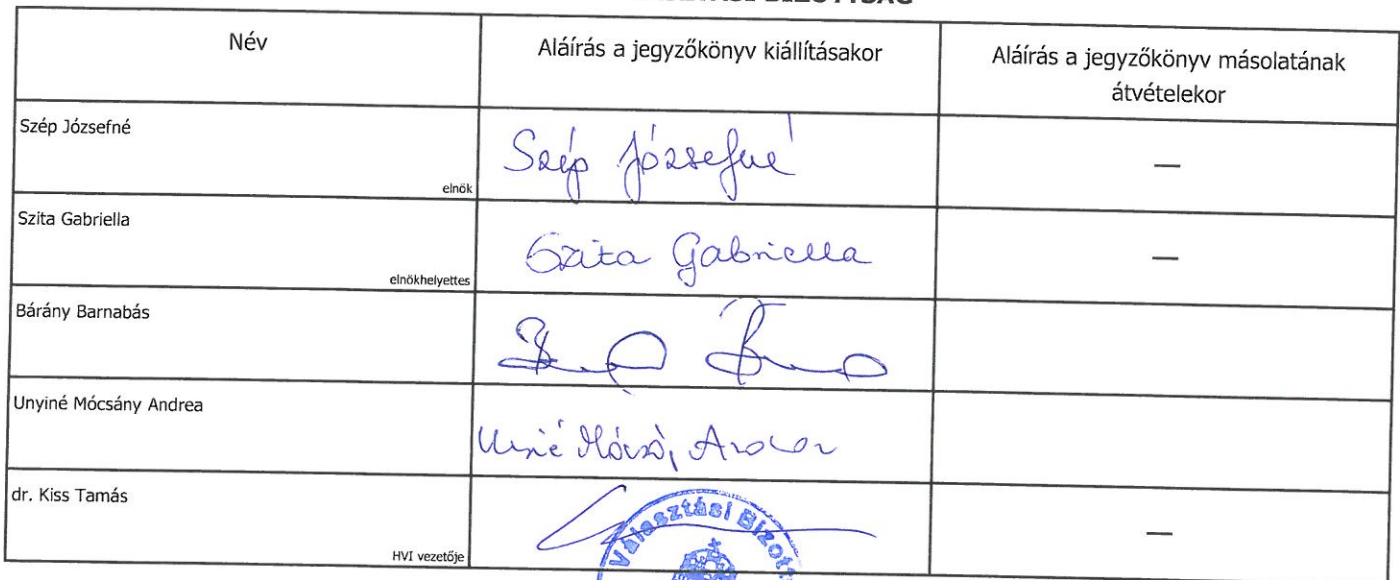 BIZOTTSÁG
Név
Aláírás a jegyzőkönyv kiállításakor
Aláírás a jegyzőkönyv másolatának
átvételekor
Szép Józsefné
elnök
Szép Józsefné
—
Szita Gabriella
elnökhelyettes
Szita Gabriella
—
Bárány Barnabás
Unyiné Mócsány Andrea
dr. Kiss Tamás
HVI vezetője
Választási Bizott
—